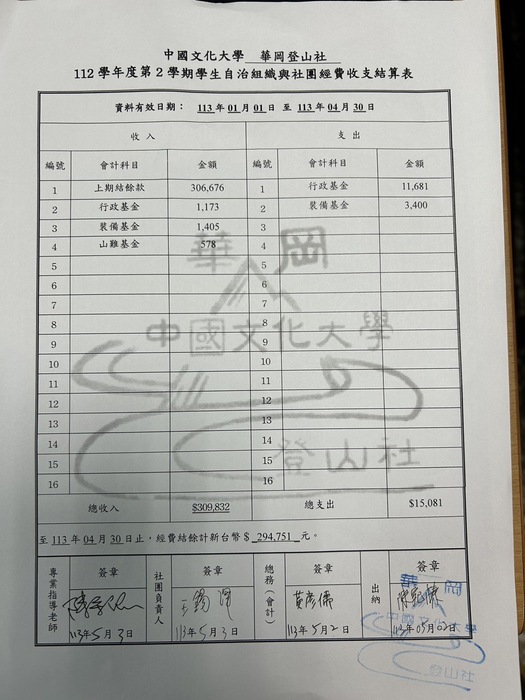 中國文化大學 華岡登山社
112 學年度第 2 學期學生自治組織與社團經費收支結算表
資料有效日期： 113 年 01 月 01 日 至 113 年 04 月 30 日
收 入 支 出
編號 會計科目 金額 編號 會計科目 金額
1 上期結餘款 306,676 1 行政基金 11,681
2 行政基金 1,173 2 裝備基金 3,400
3 裝備基金 1,405 3
4 山難基金 578 4
5 5
6 6
7 7
8 8
9 9
10 10
11 11
12 12
13 13
14 14
15 15
16 16
華岡
中國文化大學
登山社
總收入 $309,832 總支出 $15,081
至 113 年 04 月 30 日止，經費結餘計新台幣 $ 294,751 元。
專業指導老師 簽章 社團負責人 簽章 總務（會計） 簽章 出納 簽章
113年5月3日 113年5月3日 113年5月2日 113年05月02日
華岡
中國文化大學
登山社